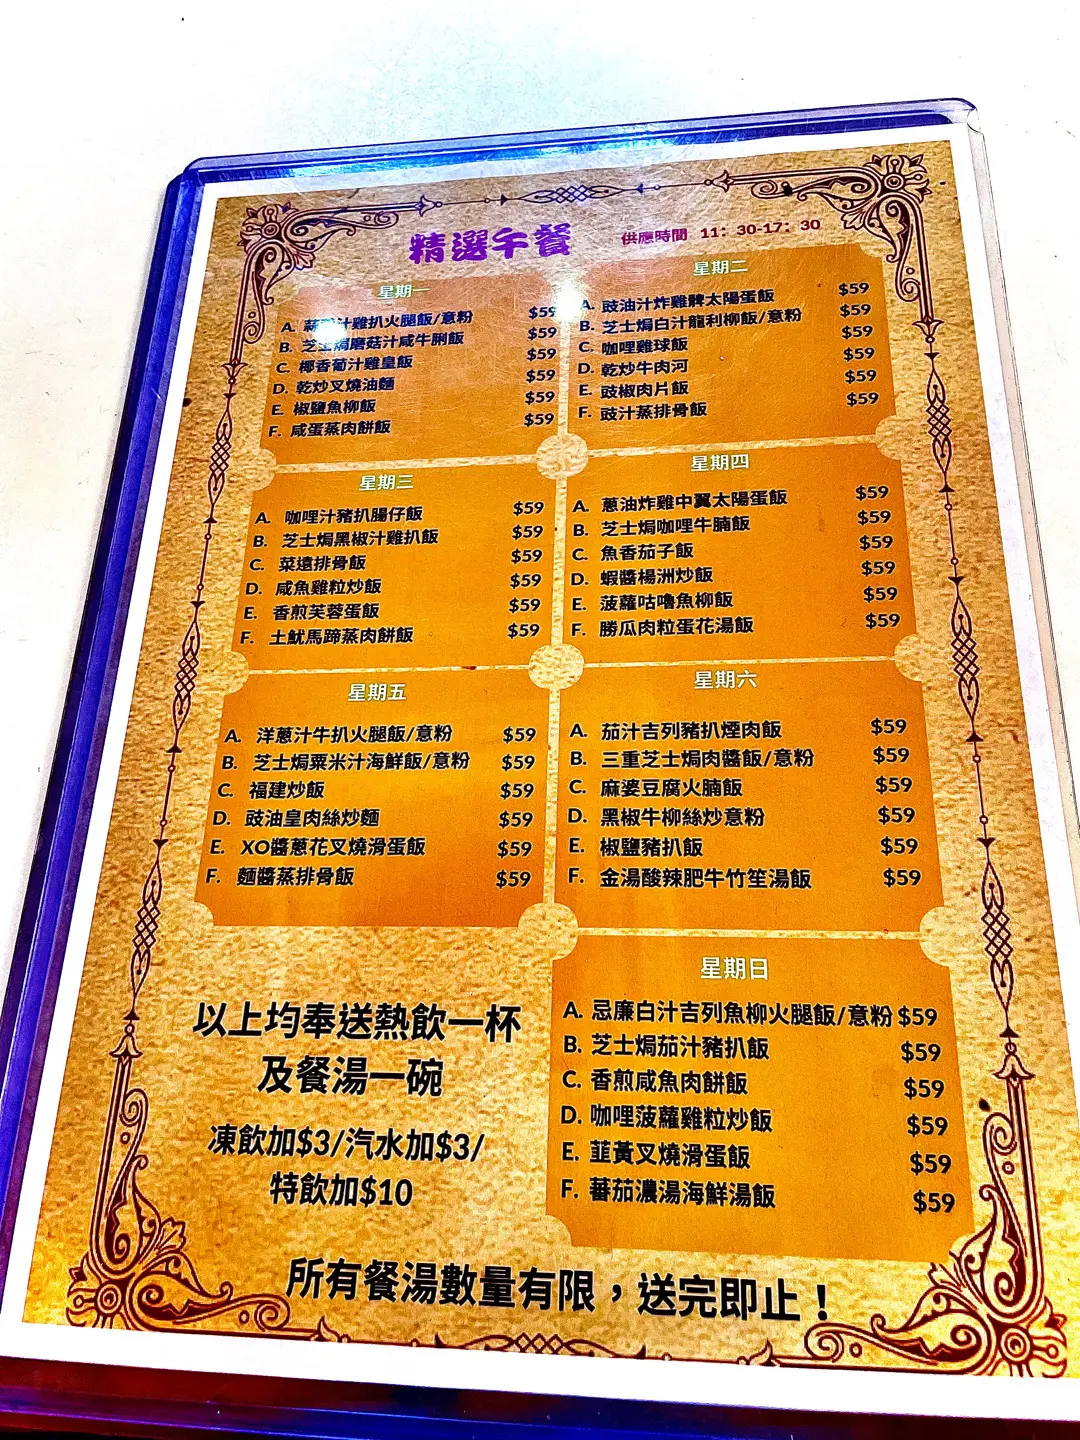 精選午餐
供應時間 11：30-17：30
星期一
A. 蒜蓉汁雞扒火腿飯/意粉 $59
B. 芝士焗磨菇汁咸牛脷飯 $59
C. 椰香葡汁雞皇飯 $59
D. 乾炒叉燒油麵 $59
E. 椒鹽魚柳飯 $59
F. 咸蛋蒸肉餅飯 $59
星期二
A. 豉油汁炸雞髀太陽蛋飯 $59
B. 芝士焗白汁龍利柳飯/意粉 $59
C. 咖哩雞球飯 $59
D. 乾炒牛肉河 $59
E. 豉椒肉片飯 $59
F. 豉汁蒸排骨飯 $59
星期三
A. 咖哩汁豬扒腸仔飯 $59
B. 芝士焗黑椒汁雞扒飯 $59
C. 菜遠排骨飯 $59
D. 咸魚雞粒炒飯 $59
E. 香煎芙蓉蛋飯 $59
F. 土魷馬蹄蒸肉餅飯 $59
星期四
A. 蔥油炸雞中翼太陽蛋飯 $59
B. 芝士焗咖哩牛腩飯 $59
C. 魚香茄子飯 $59
D. 蝦醬楊洲炒飯 $59
E. 菠蘿咕嚕魚柳飯 $59
F. 勝瓜肉粒蛋花湯飯 $59
星期五
A. 洋蔥汁牛扒火腿飯/意粉 $59
B. 芝士焗粟米汁海鮮飯/意粉 $59
C. 福建炒飯 $59
D. 豉油皇肉絲炒麵 $59
E. XO醬蔥花叉燒滑蛋飯 $59
F. 麵醬蒸排骨飯 $59
星期六
A. 茄汁吉列豬扒煙肉飯 $59
B. 三重芝士焗肉醬飯/意粉 $59
C. 麻婆豆腐火腩飯 $59
D. 黑椒牛柳絲炒意粉 $59
E. 椒鹽豬扒飯 $59
F. 金湯酸辣肥牛竹笙湯飯 $59
星期日
A. 忌廉白汁吉列魚柳火腿飯/意粉 $59
B. 芝士焗茄汁豬扒飯 $59
C. 香煎咸魚肉餅飯 $59
D. 咖哩菠蘿雞粒炒飯 $59
E. 韮黃叉燒滑蛋飯 $59
F. 蕃茄濃湯海鮮湯飯 $59
以上均奉送熱飲一杯
及餐湯一碗
凍飲加$3/汽水加$3/
特飲加$10
所有餐湯數量有限，送完即止！